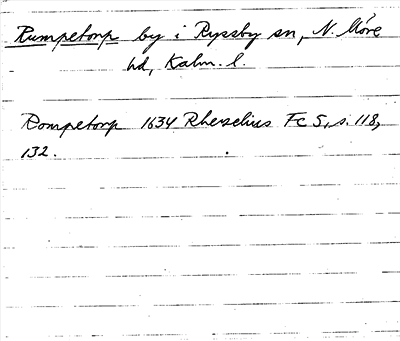 Rumpetorp by i Ryssby sn, N. Möre
hd, Kalm. l.
Rompetorp 1634 Rhezelius Fc 5, s. 118,
132.